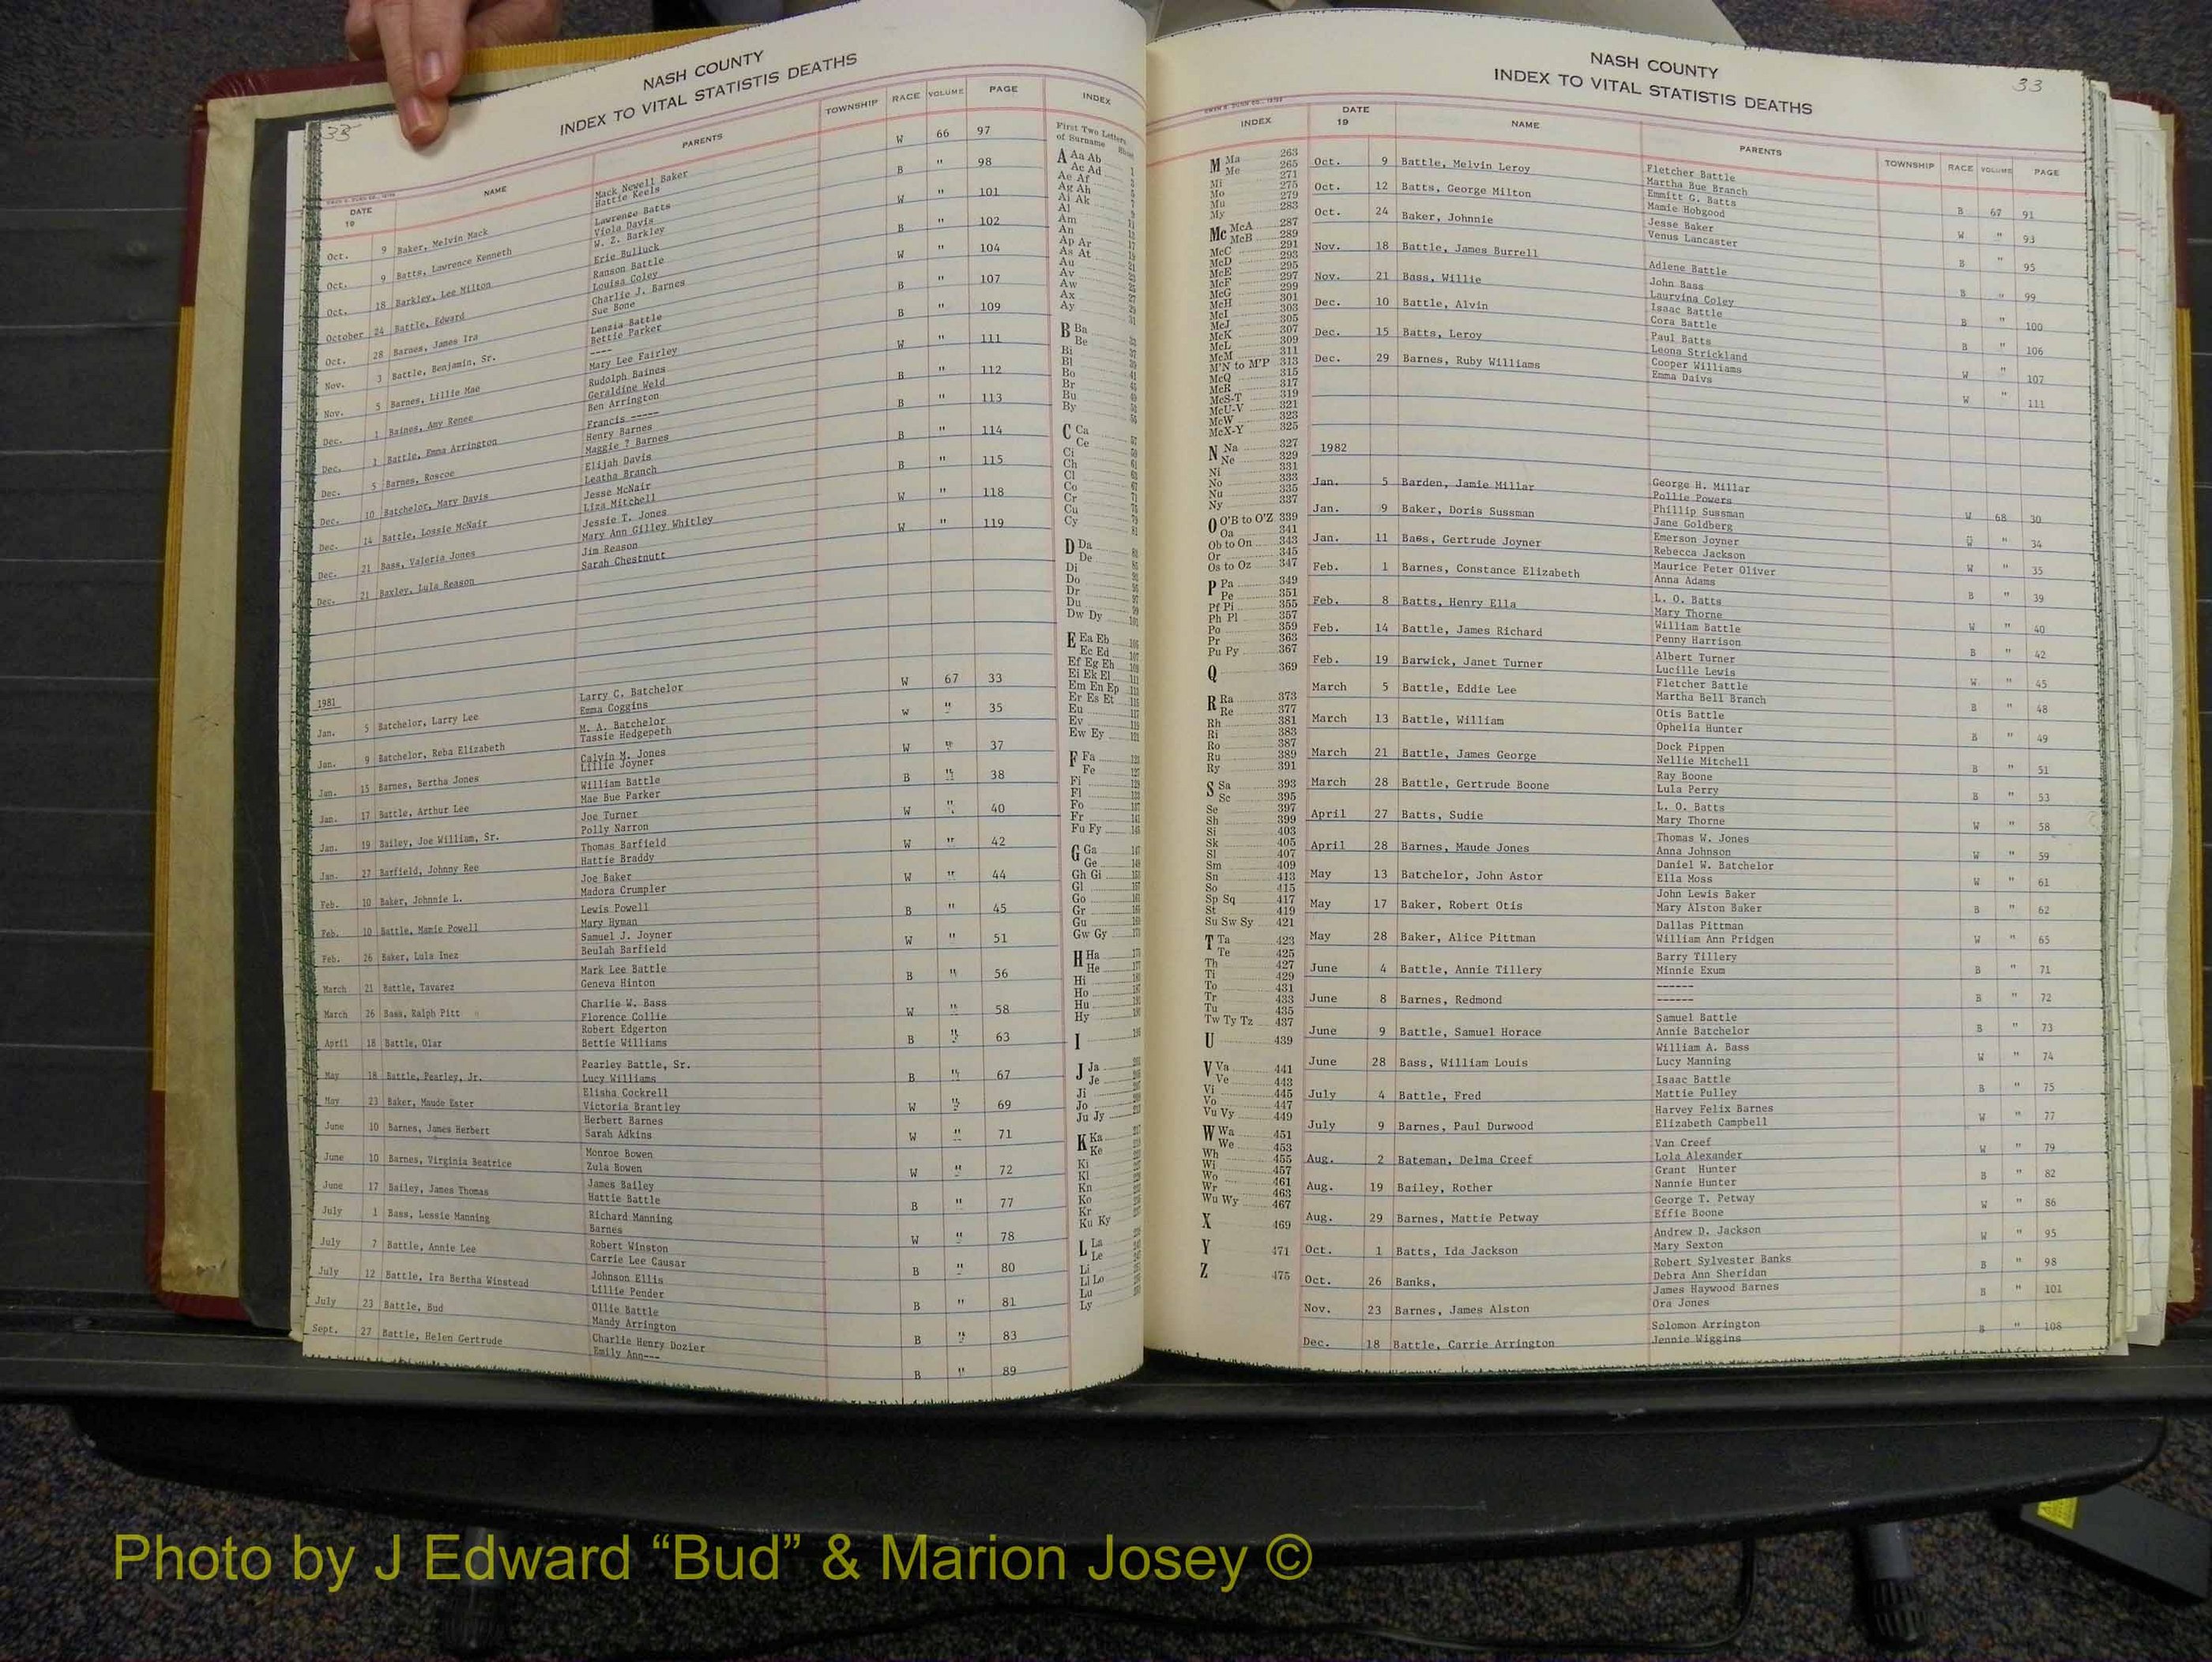 33
NASH COUNTY
INDEX TO VITAL STATISTIS DEATHS
DATE 19 NAME PARENTS TOWNSHIP RACE VOLUME PAGE
Oct. 9 Baker, Melvin Mack Mack Newell Baker W 66 97
Hattie Keels
Oct. 9 Batts, Lawrence Kenneth Lawrence Batts B " 98
Viola Davis
Oct. 18 Barkley, Lee Milton W. Z. Barkley W " 101
Erie Bulluck
October 24 Battle, Edward Ranson Battle B " 102
Louisa Coley
Oct. 28 Barnes, James Ira Charlie J. Barnes W " 104
Sue Bone
Nov. 3 Battle, Benjamin, Sr. Lenzia Battle B " 107
Bettie Parker
Nov. 5 Barnes, Lillie Mae ---- B " 109
Mary Lee Fairley
Dec. 1 Baines, Amy Renee Rudolph Baines W " 111
Geraldine Weld
Dec. 1 Battle, Emma Arrington Ben Arrington B " 112
Francis -----
Dec. 5 Barnes, Roscoe Henry Barnes B " 113
Maggie ? Barnes
Dec. 10 Batchelor, Mary Davis Elijah Davis B " 114
Leatha Branch
Dec. 14 Battle, Lossie McNair Jesse McNair B " 115
Liza Mitchell
Dec. 21 Bass, Valeria Jones Jessie T. Jones W " 118
Mary Ann Gilley Whitley
Dec. 21 Baxley, Lula Reason Jim Reason W " 119
Sarah Chestnutt
1981
Jan. 5 Batchelor, Larry Lee Larry C. Batchelor W 67 33
Emma Coggins
Jan. 9 Batchelor, Reba Elizabeth M. A. Batchelor W " 35
Tassie Hedgepeth
Jan. 15 Barnes, Bertha Jones Calvin M. Jones W " 37
Lillie Joyner
Jan. 17 Battle, Arthur Lee William Battle B " 38
Mae Bue Parker
Jan. 19 Bailey, Joe William, Sr. Joe Turner W " 40
Polly Narron
Jan. 27 Barfield, Johnny Ree Thomas Barfield W " 42
Hattie Braddy
Feb. 10 Baker, Johnnie L. Joe Baker W " 44
Madora Crumpler
Feb. 10 Battle, Mamie Powell Lewis Powell B " 45
Mary Hyman
Feb. 26 Baker, Lula Inez Samuel J. Joyner W " 51
Beulah Barfield
March 21 Battle, Tavarez Mark Lee Battle B " 56
Geneva Hinton
March 26 Bass, Ralph Pitt Charlie W. Bass W " 58
Florence Collie
April 18 Battle, Olar Robert Edgerton B " 63
Bettie Williams
May 18 Battle, Pearley, Jr. Pearley Battle, Sr. B " 67
Lucy Williams
May 23 Baker, Maude Ester Elisha Cockrell W " 69
Victoria Brantley
June 10 Barnes, James Herbert Herbert Barnes W " 71
Sarah Adkins
June 10 Barnes, Virginia Beatrice Monroe Bowen W " 72
Zula Bowen
June 17 Bailey, James Thomas James Bailey B " 77
Hattie Battle
July 1 Bass, Lessie Manning Richard Manning W " 78
Barnes
July 7 Battle, Annie Lee Robert Winston B " 80
Carrie Lee Causar
July 12 Battle, Ira Bertha Winstead Johnson Ellis B " 81
Lillie Pender
July 23 Battle, Bud Ollie Battle B " 83
Mandy Arrington
Sept. 27 Battle, Helen Gertrude Charlie Henry Dozier B " 89
Emily Ann---
INDEX
First Two Letters
of Surname
A Aa Ab
Ac Ad
Ae Af
Ag Ah
Ai Ak
Al
Am
An
Ap Ar
As At
Au
Av
Aw
Ax
Ay
B Ba
Be
Bi
Bl
Bo
Br
Bu
By
C Ca
Ce
Ci
Ch
Cl
Co
Cr
Cu
Cy
D Da
De
Di
Do
Dr
Du
Dw Dy
E Ea Eb
Ec Ed
Ef Eg Eh
Ei Ek El
Em En Ep
Er Es Et
Eu
Ev
Ew Ey
F Fa
Fe
Fi
Fl
Fo
Fr
Fu Fy
G Ga
Ge
Gh Gi
Gl
Go
Gr
Gu
Gw Gy
H Ha
He
Hi
Ho
Hu
Hy
I
J Ja
Je
Ji
Jo
Ju Jy
K Ka
Ke
Ki
Kl
Kn
Ko
Kr
Ku Ky
L La
Le
Li
Ll Lo
Lu
Ly
33
NASH COUNTY
INDEX TO VITAL STATISTIS DEATHS
INDEX DATE 19 NAME PARENTS TOWNSHIP RACE VOLUME PAGE
M Ma 263
Me 265
Mi 271
Mo 275
Mu 279
My 283
Mc McA 287
McB 289
McC 291
McD 293
McE 295
McF 297
McG 299
McH 301
McI 303
McJ 305
McK 307
McL 309
McM 311
M'N to M'P 313
McQ 315
McR 317
McS-T 319
McU-V 321
McW 323
McX-Y 325
N Na 327
Ne 329
Ni 331
No 333
Nu 335
Ny 337
O O'B to O'Z 339
Oa 341
Ob to On 343
Or 345
Os to Oz 347
P Pa 349
Pe 351
Pf Pi 355
Ph Pl 357
Po 359
Pr 363
Pu Py 367
Q 369
R Ra 373
Re 377
Rh 381
Ri 383
Ro 387
Ru 389
Ry 391
S Sa 393
Sc 395
Se 397
Sh 399
Si 403
Sk 405
Sl 407
Sm 409
Sn 413
So 415
Sp Sq 417
St 419
Su Sw Sy 421
T Ta 423
Te 425
Th 427
Ti 429
To 431
Tr 433
Tu 435
Tw Ty Tz 437
U 439
V Va 441
Ve 443
Vi 445
Vo 447
Vu Vy 449
W Wa 451
We 453
Wh 455
Wi 457
Wo 461
Wr 463
Wu Wy 467
X 469
Y 471
Z 475
Oct. 9 Battle, Melvin Leroy Fletcher Battle B 67 91
Martha Bue Branch
Oct. 12 Batts, George Milton Emmitt G. Batts W " 93
Mamie Hobgood
Oct. 24 Baker, Johnnie Jesse Baker B " 95
Venus Lancaster
Nov. 18 Battle, James Burrell B " 99
Adlene Battle
Nov. 21 Bass, Willie John Bass B " 100
Laurvina Coley
Dec. 10 Battle, Alvin Isaac Battle B " 106
Cora Battle
Dec. 15 Batts, Leroy Paul Batts W " 107
Leona Strickland
Dec. 29 Barnes, Ruby Williams Cooper Williams W " 111
Emma Daivs
1982
Jan. 5 Barden, Jamie Millar George H. Millar W 68 30
Pollie Powers
Jan. 9 Baker, Doris Sussman Phillip Sussman W " 34
Jane Goldberg
Jan. 11 Bass, Gertrude Joyner Emerson Joyner W " 35
Rebecca Jackson
Feb. 1 Barnes, Constance Elizabeth Maurice Peter Oliver B " 39
Anna Adams
Feb. 8 Batts, Henry Ella L. O. Batts W " 40
Mary Thorne
Feb. 14 Battle, James Richard William Battle B " 42
Penny Harrison
Feb. 19 Barwick, Janet Turner Albert Turner W " 45
Lucille Lewis
March 5 Battle, Eddie Lee Fletcher Battle B " 48
Martha Bell Branch
March 13 Battle, William Otis Battle B " 49
Ophelia Hunter
March 21 Battle, James George Dock Pippen B " 51
Nellie Mitchell
March 28 Battle, Gertrude Boone Ray Boone B " 53
Lula Perry
April 27 Batts, Sudie L. O. Batts W " 58
Mary Thorne
April 28 Barnes, Maude Jones Thomas W. Jones W " 59
Anna Johnson
May 13 Batchelor, John Astor Daniel W. Batchelor W " 61
Ella Moss
May 17 Baker, Robert Otis John Lewis Baker B " 62
Mary Alston Baker
May 28 Baker, Alice Pittman Dallas Pittman W " 65
William Ann Pridgen
June 4 Battle, Annie Tillery Barry Tillery B " 71
Minnie Exum
June 8 Barnes, Redmond ------ B " 72
------
June 9 Battle, Samuel Horace Samuel Battle B " 73
Annie Batchelor
June 28 Bass, William Louis William A. Bass W " 74
Lucy Manning
July 4 Battle, Fred Isaac Battle B " 75
Mattie Pulley
July 9 Barnes, Paul Durwood Harvey Felix Barnes W " 77
Elizabeth Campbell
Aug. 2 Bateman, Delma Creef Van Creef W " 79
Lola Alexander
Aug. 19 Bailey, Rother Grant Hunter B " 82
Nannie Hunter
Aug. 29 Barnes, Mattie Petway George T. Petway W " 86
Effie Boone
Oct. 1 Batts, Ida Jackson Andrew D. Jackson W " 95
Mary Sexton
Oct. 26 Banks, Robert Sylvester Banks B " 98
Debra Ann Sheridan
Nov. 23 Barnes, James Alston James Haywood Barnes B " 101
Ora Jones
Dec. 18 Battle, Carrie Arrington Solomon Arrington B " 108
Jennie Wiggins
Photo by J Edward “Bud” & Marion Josey ©